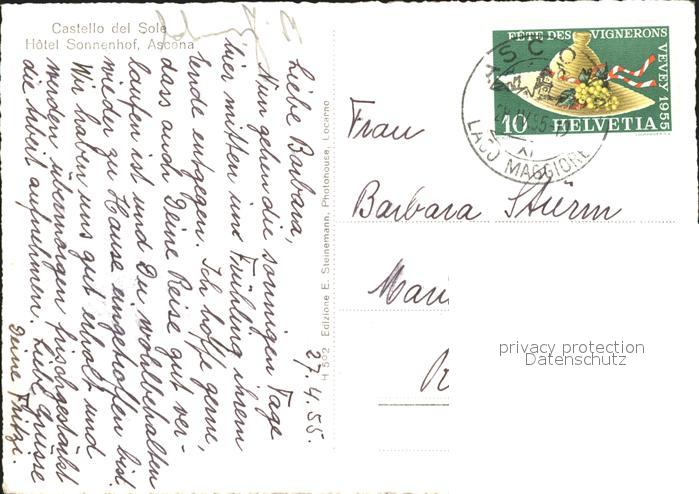 Castello del Sole
Hôtel Sonnenhof, Ascona
27.4.55.
Liebe Barbara,
Nun gehen die sonnigen Tage
hier mitten im Frühling ihrem
Ende entgegen. Ich hoffe gerne,
dass auch Deine Reise gut ver-
laufen ist und Du wohlbehalten
wieder zu Hause eingetroffen bist.
Wir haben uns gut erholt und
werden übermorgen frischgestärkt
die Arbeit aufnehmen. Liebe Grüsse
Deine Fritzi.
H 592 Edizione E. Steinemann, Photohouse, Locarno
FÊTE DES VIGNERONS
VEVEY 1955
10 HELVETIA
LAGO MAGGIORE
Frau
Barbara Stürm
privacy protection
Datenschutz